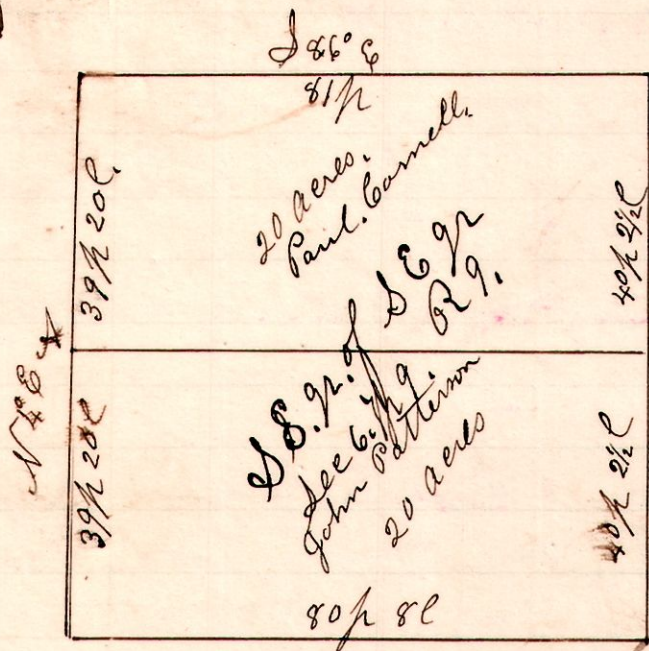 S 86° E
81 p
20 acres.
Paul. Cornell.
39 p 20 l.
40 p 2½ l
N 4° E
S E. qr. of S E qr
Sec 6. T 9. R 9.
John Patterson
20 acres
39 p 20 l
40 p 2½ l
80 p 8 l